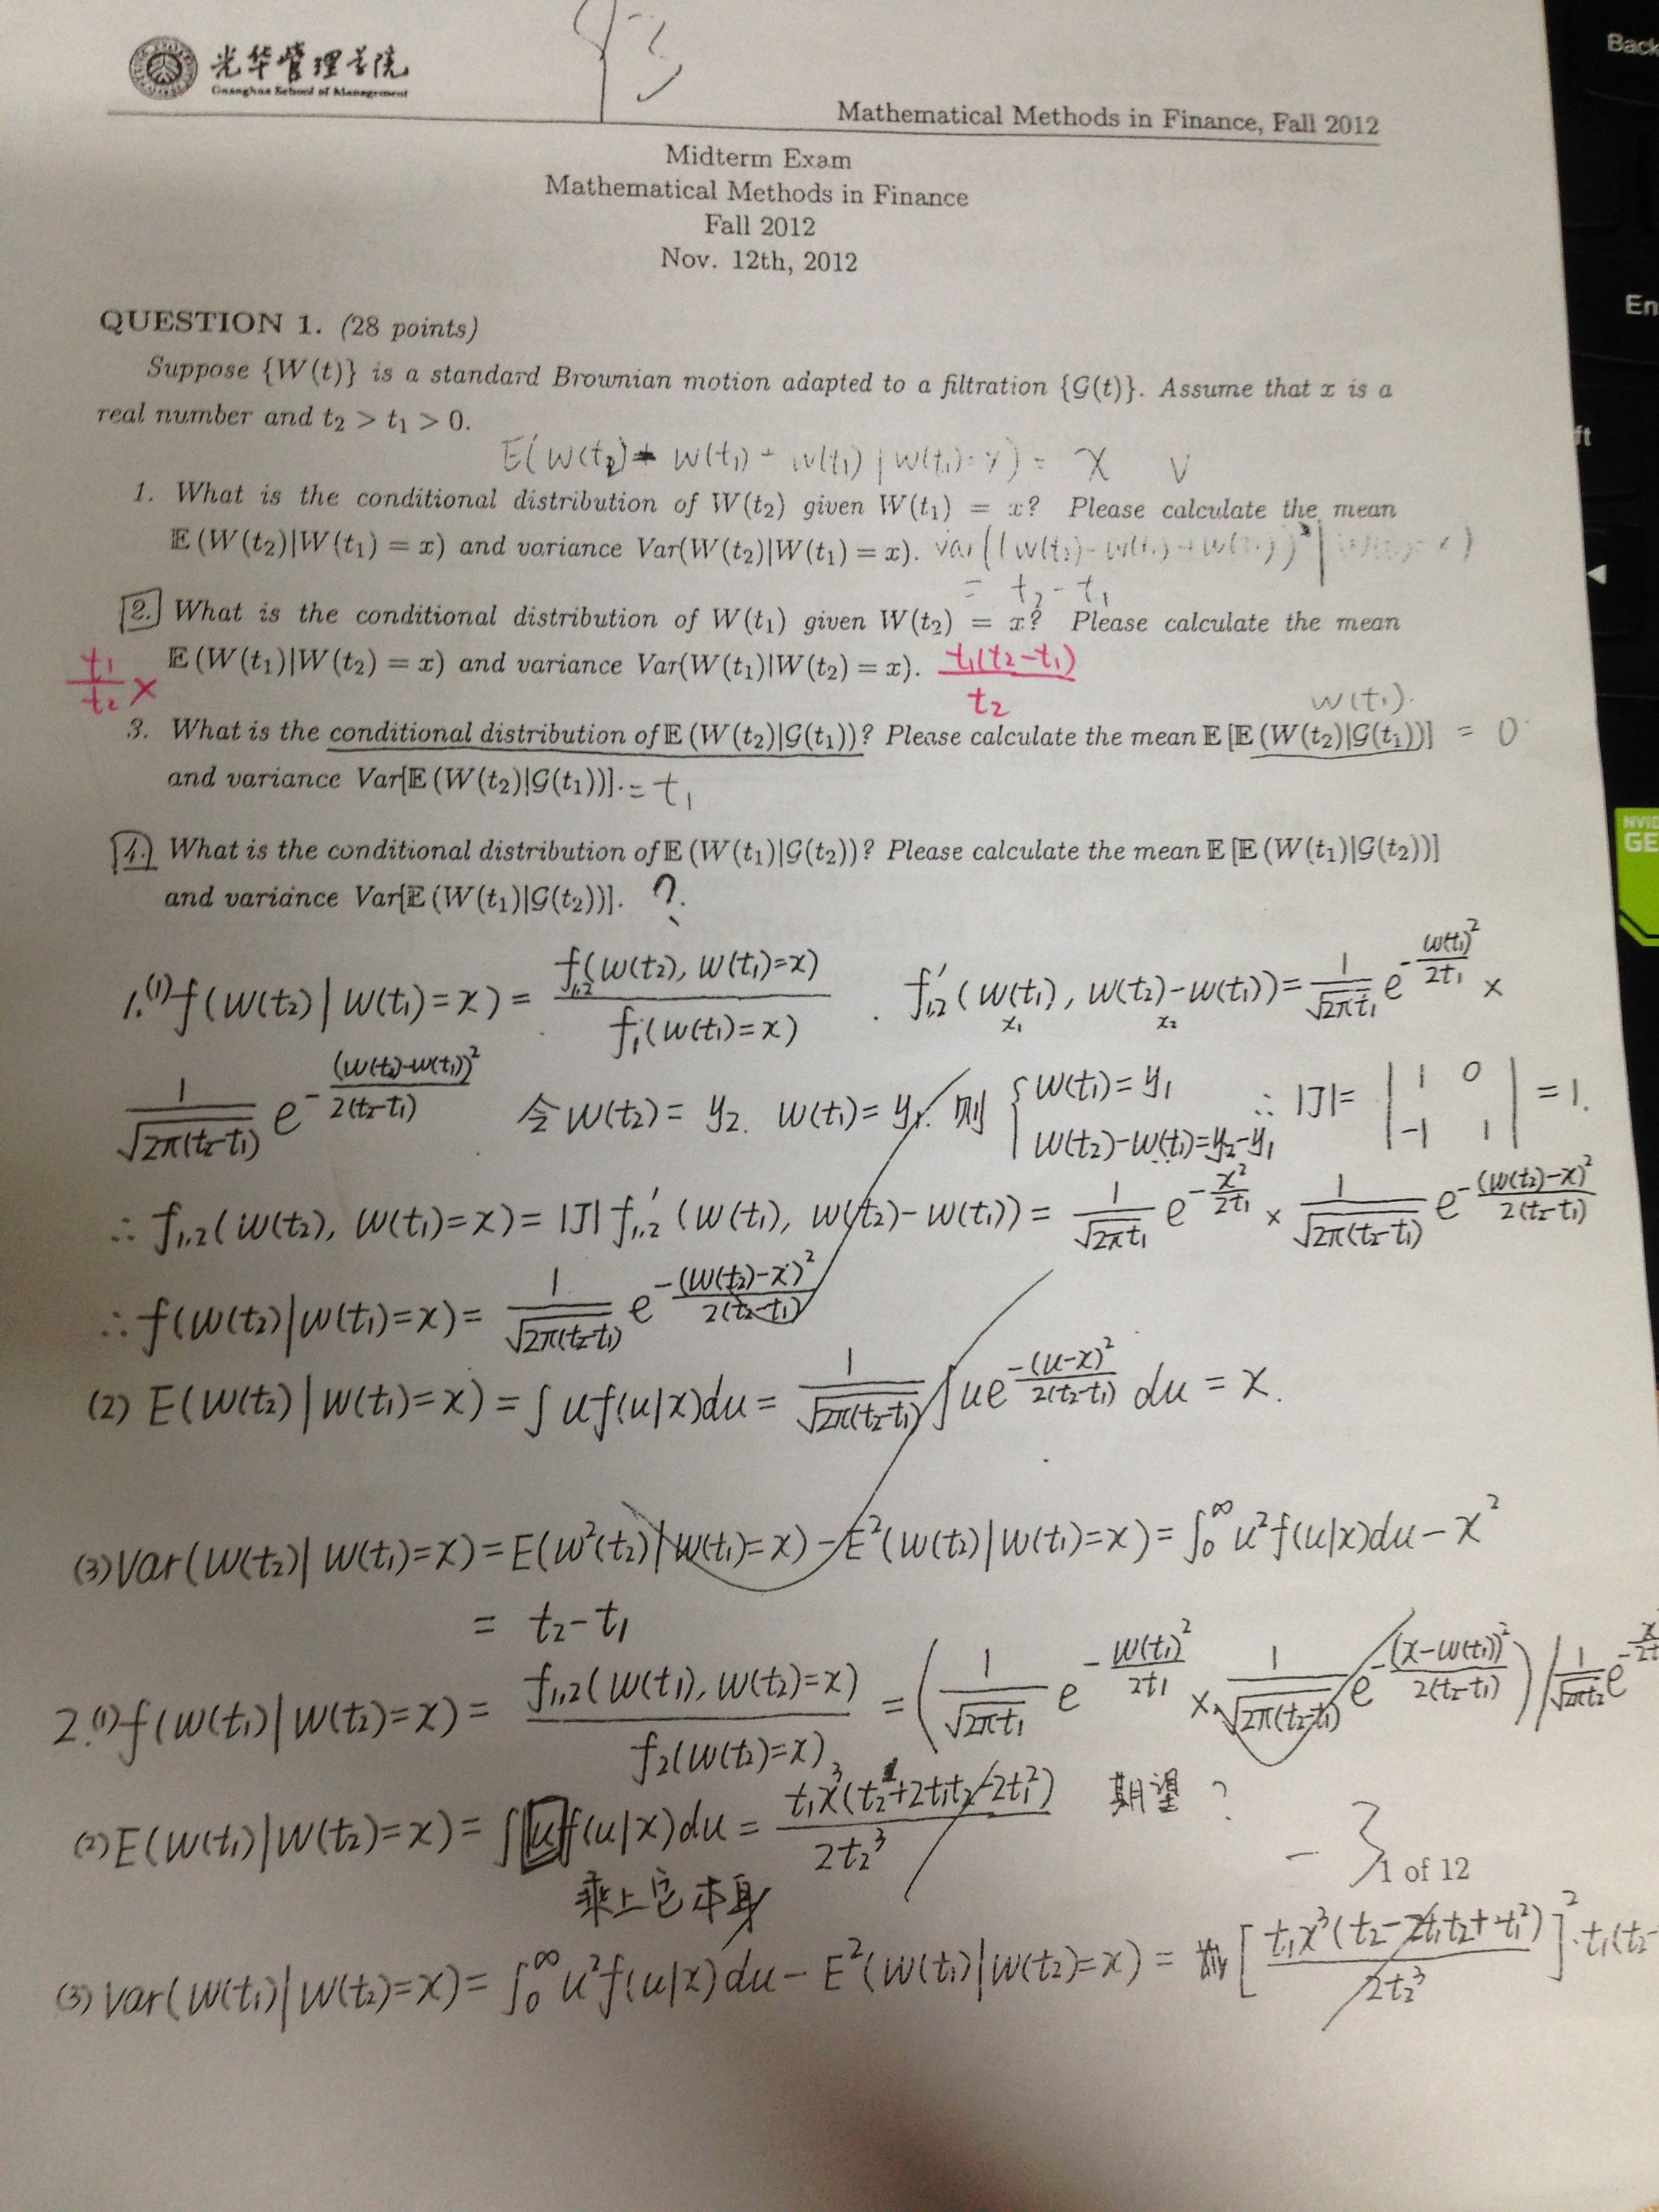 光华管理学院
Guanghua School of Management
Mathematical Methods in Finance, Fall 2012
Midterm Exam
Mathematical Methods in Finance
Fall 2012
Nov. 12th, 2012
QUESTION 1. (28 points)
Suppose {W(t)} is a standard Brownian motion adapted to a filtration {G(t)}. Assume that x is a
real number and t₂ > t₁ > 0.
E(W(t₂) - W(t₁) + W(t₁) | W(t₁)=x) = x √
1. What is the conditional distribution of W(t₂) given W(t₁) = x? Please calculate the mean
𝔼(W(t₂)|W(t₁) = x) and variance Var(W(t₂)|W(t₁) = x). Var((W(t₂)-W(t₁)+W(t₁)) | W(t₁)=x)
= t₂ - t₁
2. What is the conditional distribution of W(t₁) given W(t₂) = x? Please calculate the mean
𝔼(W(t₁)|W(t₂) = x) and variance Var(W(t₁)|W(t₂) = x). t₁(t₂-t₁)/t₂
t₁/t₂ x
W(t₁)
3. What is the conditional distribution of 𝔼(W(t₂)|G(t₁))? Please calculate the mean 𝔼[𝔼(W(t₂)|G(t₁))] = 0
and variance Var[𝔼(W(t₂)|G(t₁))]. = t₁
4. What is the conditional distribution of 𝔼(W(t₁)|G(t₂))? Please calculate the mean 𝔼[𝔼(W(t₁)|G(t₂))]
and variance Var[𝔼(W(t₁)|G(t₂))]. ?
1.(1) f(W(t₂)|W(t₁)=x) = f₁,₂(W(t₂), W(t₁)=x) / f₁(W(t₁)=x) . f′₁,₂(W(t₁), W(t₂)-W(t₁)) = 1/√(2πt₁) e^(-W(t₁)²/2t₁) ×
x₁ x₂
1/√(2π(t₂-t₁)) e^(-(W(t₂)-W(t₁))²/2(t₂-t₁)) 令W(t₂)=y₂. W(t₁)=y₁. 则 { W(t₁)=y₁ W(t₂)-W(t₁)=y₂-y₁ ∴ |J| = | 1 0 -1 1 | = 1.
∴ f₁,₂(W(t₂), W(t₁)=x) = |J| f′₁,₂(W(t₁), W(t₂)-W(t₁)) = 1/√(2πt₁) e^(-x²/2t₁) × 1/√(2π(t₂-t₁)) e^(-(W(t₂)-x)²/2(t₂-t₁))
∴ f(W(t₂)|W(t₁)=x) = 1/√(2π(t₂-t₁)) e^(-(W(t₂)-x)²/2(t₂-t₁))
(2) E(W(t₂)|W(t₁)=x) = ∫uf(u|x)du = 1/√(2π(t₂-t₁)) ∫ue^(-(u-x)²/2(t₂-t₁)) du = x.
(3) Var(W(t₂)|W(t₁)=x) = E(W²(t₂)|W(t₁)=x) - E²(W(t₂)|W(t₁)=x) = ∫₀^∞ u²f(u|x)du - x²
= t₂-t₁
2.(1) f(W(t₁)|W(t₂)=x) = f₁,₂(W(t₁), W(t₂)=x) / f₂(W(t₂)=x) = (1/√(2πt₁) e^(-W(t₁)²/2t₁) × 1/√(2π(t₂-t₁)) e^(-(x-W(t₁))²/2(t₂-t₁))) / 1/√(2πt₂) e
(2) E(W(t₁)|W(t₂)=x) = ∫uf(u|x)du = t₁x³(t₂+2t₁t₂-2t₁²) / 2t₂³ 期望?
乘上它本身
-3
1 of 12
(3) Var(W(t₁)|W(t₂)=x) = ∫₀^∞ u²f(u|x)du - E²(W(t₁)|W(t₂)=x) = [t₁x³(t₂-2t₁t₂+t₁²) / 2t₂³]² · t₁(t₂-
Back
En
ft
NVID
GE